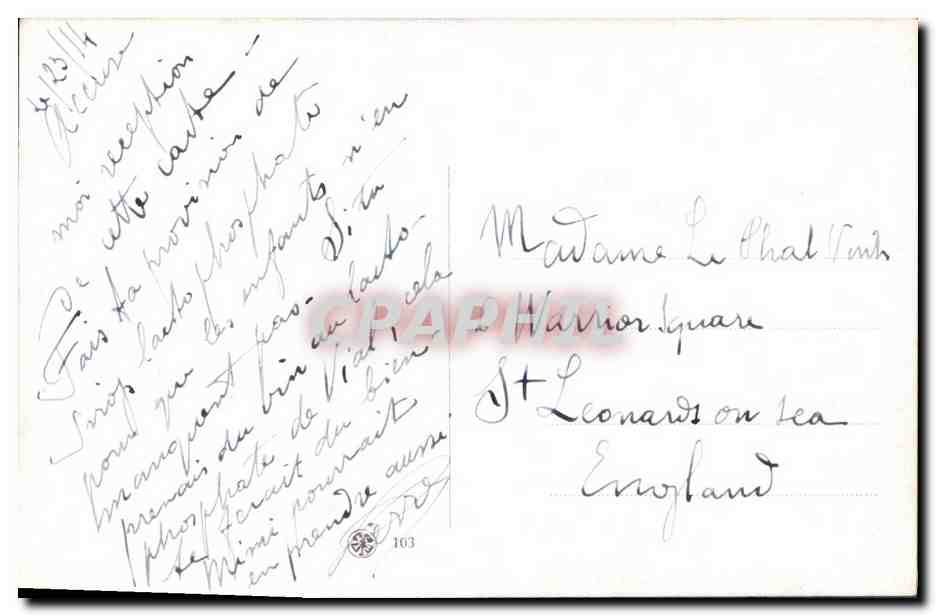 le 23/14
Accuse
moi réception
de cette carte -
Fais ta provision de
sirop lacto phosphate
pour que les enfants n'en
manquent pas - Si tu
prenais du vin au lacto-
phosphate de Vial, cela
te ferait du bien
Mimi pourrait
en prendre aussi
Pierre
CPAPHIL
103
Madame Le Chat
2 Warrior Square
St Leonards on sea
England